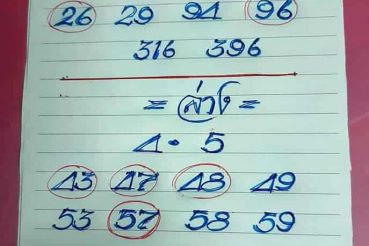 26 29 94 96
316 396
= ล่าง =
4 • 5
43 47 48 49
53 57 58 59